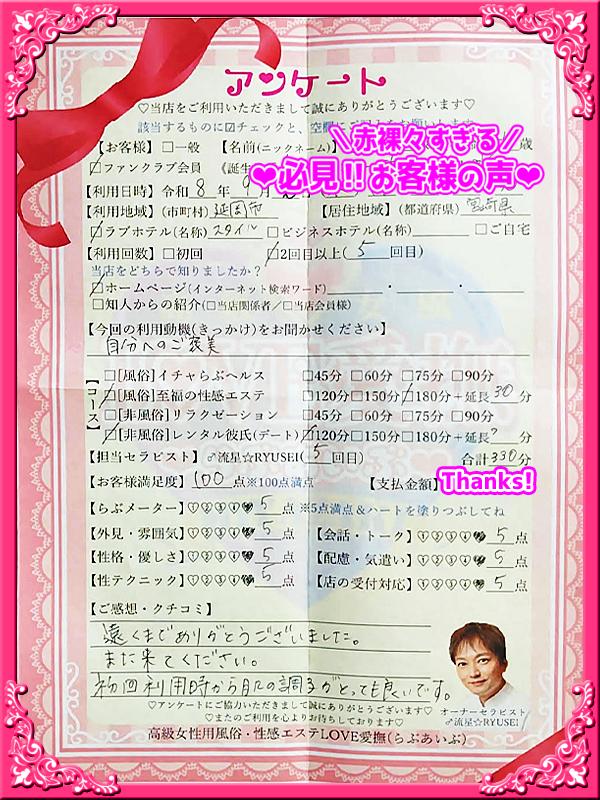 アンケート
♡当店をご利用いただきまして誠にありがとうございます♡
該当するものに☑チェックと、空欄に
＼赤裸々すぎる／
❤必見!!お客様の声❤
【お客様】 □一般 【名前(ニックネーム) 歳
☑ファンクラブ会員 (誕生
【利用日時】 令和 8 年 9月
【利用地域】 (市町村) 延岡市 【居住地域】 (都道府県) 宮崎県
☑ラブホテル(名称) スタイル □ビジネスホテル(名称) □ご自宅
【利用回数】 □初回 ☑2回目以上( 5 回目)
当店をどちらで知りましたか？
☑ホームページ(インターネット検索ワード) ・ ・ ・
□知人からの紹介(□当店関係者／□当店会員様)
【今回の利用動機(きっかけ)をお聞かせください】
自分へのご褒美
【コース】
□[風俗]イチャらぶヘルス □45分 □60分 □75分 □90分
☑[風俗]至福の性感エステ □120分 □150分 ☑180分 +延長 30 分
□[非風俗]リラクゼーション □45分 □60分 □75分 □90分
☑[非風俗]レンタル彼氏(デート) ☑120分 □150分 □180分 +延長? 分
【担当セラピスト】 ♂流星☆RYUSEI( 5 回目) 合計 330 分
【お客様満足度】 100 点 ※100点満点 【支払金額】 Thanks!
【らぶメーター】 ♡1♡2♡3♡4♥ 5 点 ※5点満点＆ハートを塗りつぶしてね
【外見・雰囲気】 ♡1♡2♡3♡4♥ 5 点 【会話・トーク】 ♡1♡2♡3♡4♥ 5 点
【性格・優しさ】 ♡1♡2♡3♡4♥ 5 点 【配慮・気遣い】 ♡1♡2♡3♡4♥ 5 点
【性テクニック】 ♡1♡2♡3♡4♥ 5 点 【店の受付対応】 ♡1♡2♡3♡4♥ 5 点
【ご感想・クチコミ】
遠くまでありがとうございました。
また来てください。
初回利用時から肌の調子がとっても良いです。
♡アンケートにご協力いただきまして誠にありがとうございます♡
♡またのご利用を心よりお待ちしております♡
オーナーセラピスト
♂流星☆RYUSEI
高級女性用風俗・性感エステLOVE愛撫(らぶあいぶ)